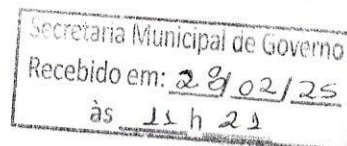 Secretaria Municipal de Governo
Recebido em: 28/02/25
às 11 h 21